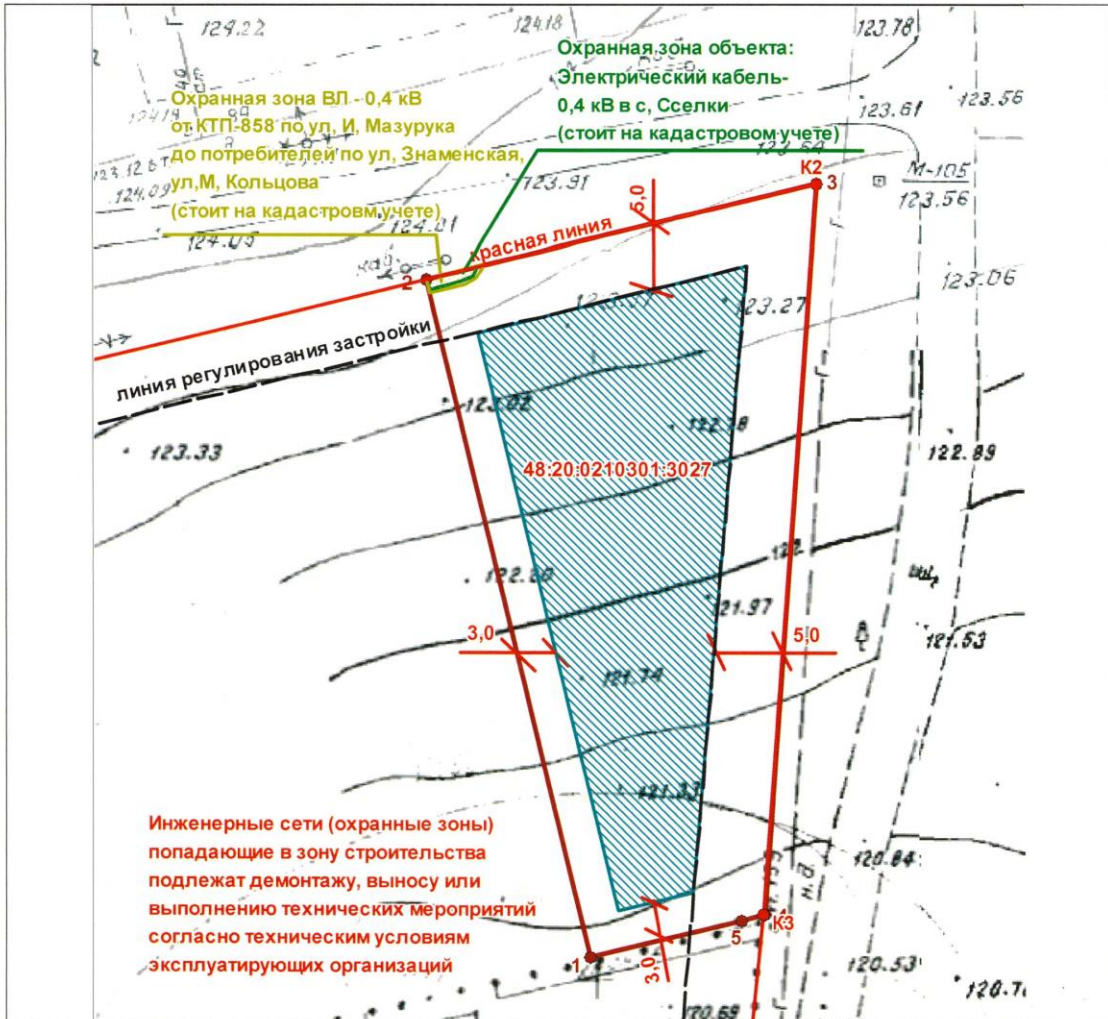 124.22
124.18
123.78
Охранная зона объекта:
Электрический кабель-
0,4 кВ в с, Сселки
(стоит на кадастровом учете)
Охранная зона ВЛ - 0,4 кВ
от КТП-858 по ул, И, Мазурука
до потребителей по ул, Знаменская,
ул,М, Кольцова
(стоит на кадастровм учете)
123.61
123.56
124.09
123.91
124.01
124.05
К2
3
М-105
123.56
5,0
красная линия
2
123.06
123.27
линия регулирования застройки
123.02
123.33
122.78
122.89
48:20:0210301:3027
122
122.20
121.97
3,0
5,0
121.53
121.74
121.33
Инженерные сети (охранные зоны)
попадающие в зону строительства
подлежат демонтажу, выносу или
выполнению технических мероприятий
согласно техническим условиям
эксплуатирующих организаций
120.84
н.д.
К3
5
1
3,0
120.53
120.69